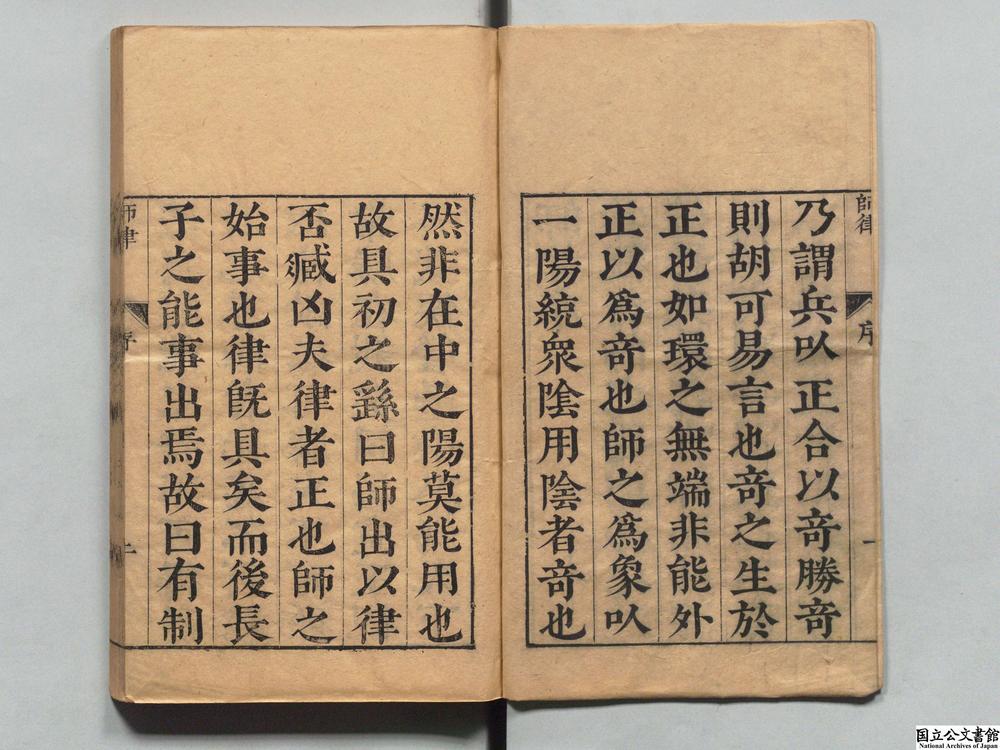 師律
序
一
乃謂兵以正合以竒勝竒
則胡可易言也竒之生於
正也如環之無端非能外
正以爲竒也師之爲象以
一陽統衆陰用陰者竒也
然非在中之陽莫能用也
故具初之繇曰師出以律
否臧凶夫律者正也師之
始事也律旣具矣而後長
子之能事出焉故曰有制
師律
序
二
国立公文書館
National Archives of Japan